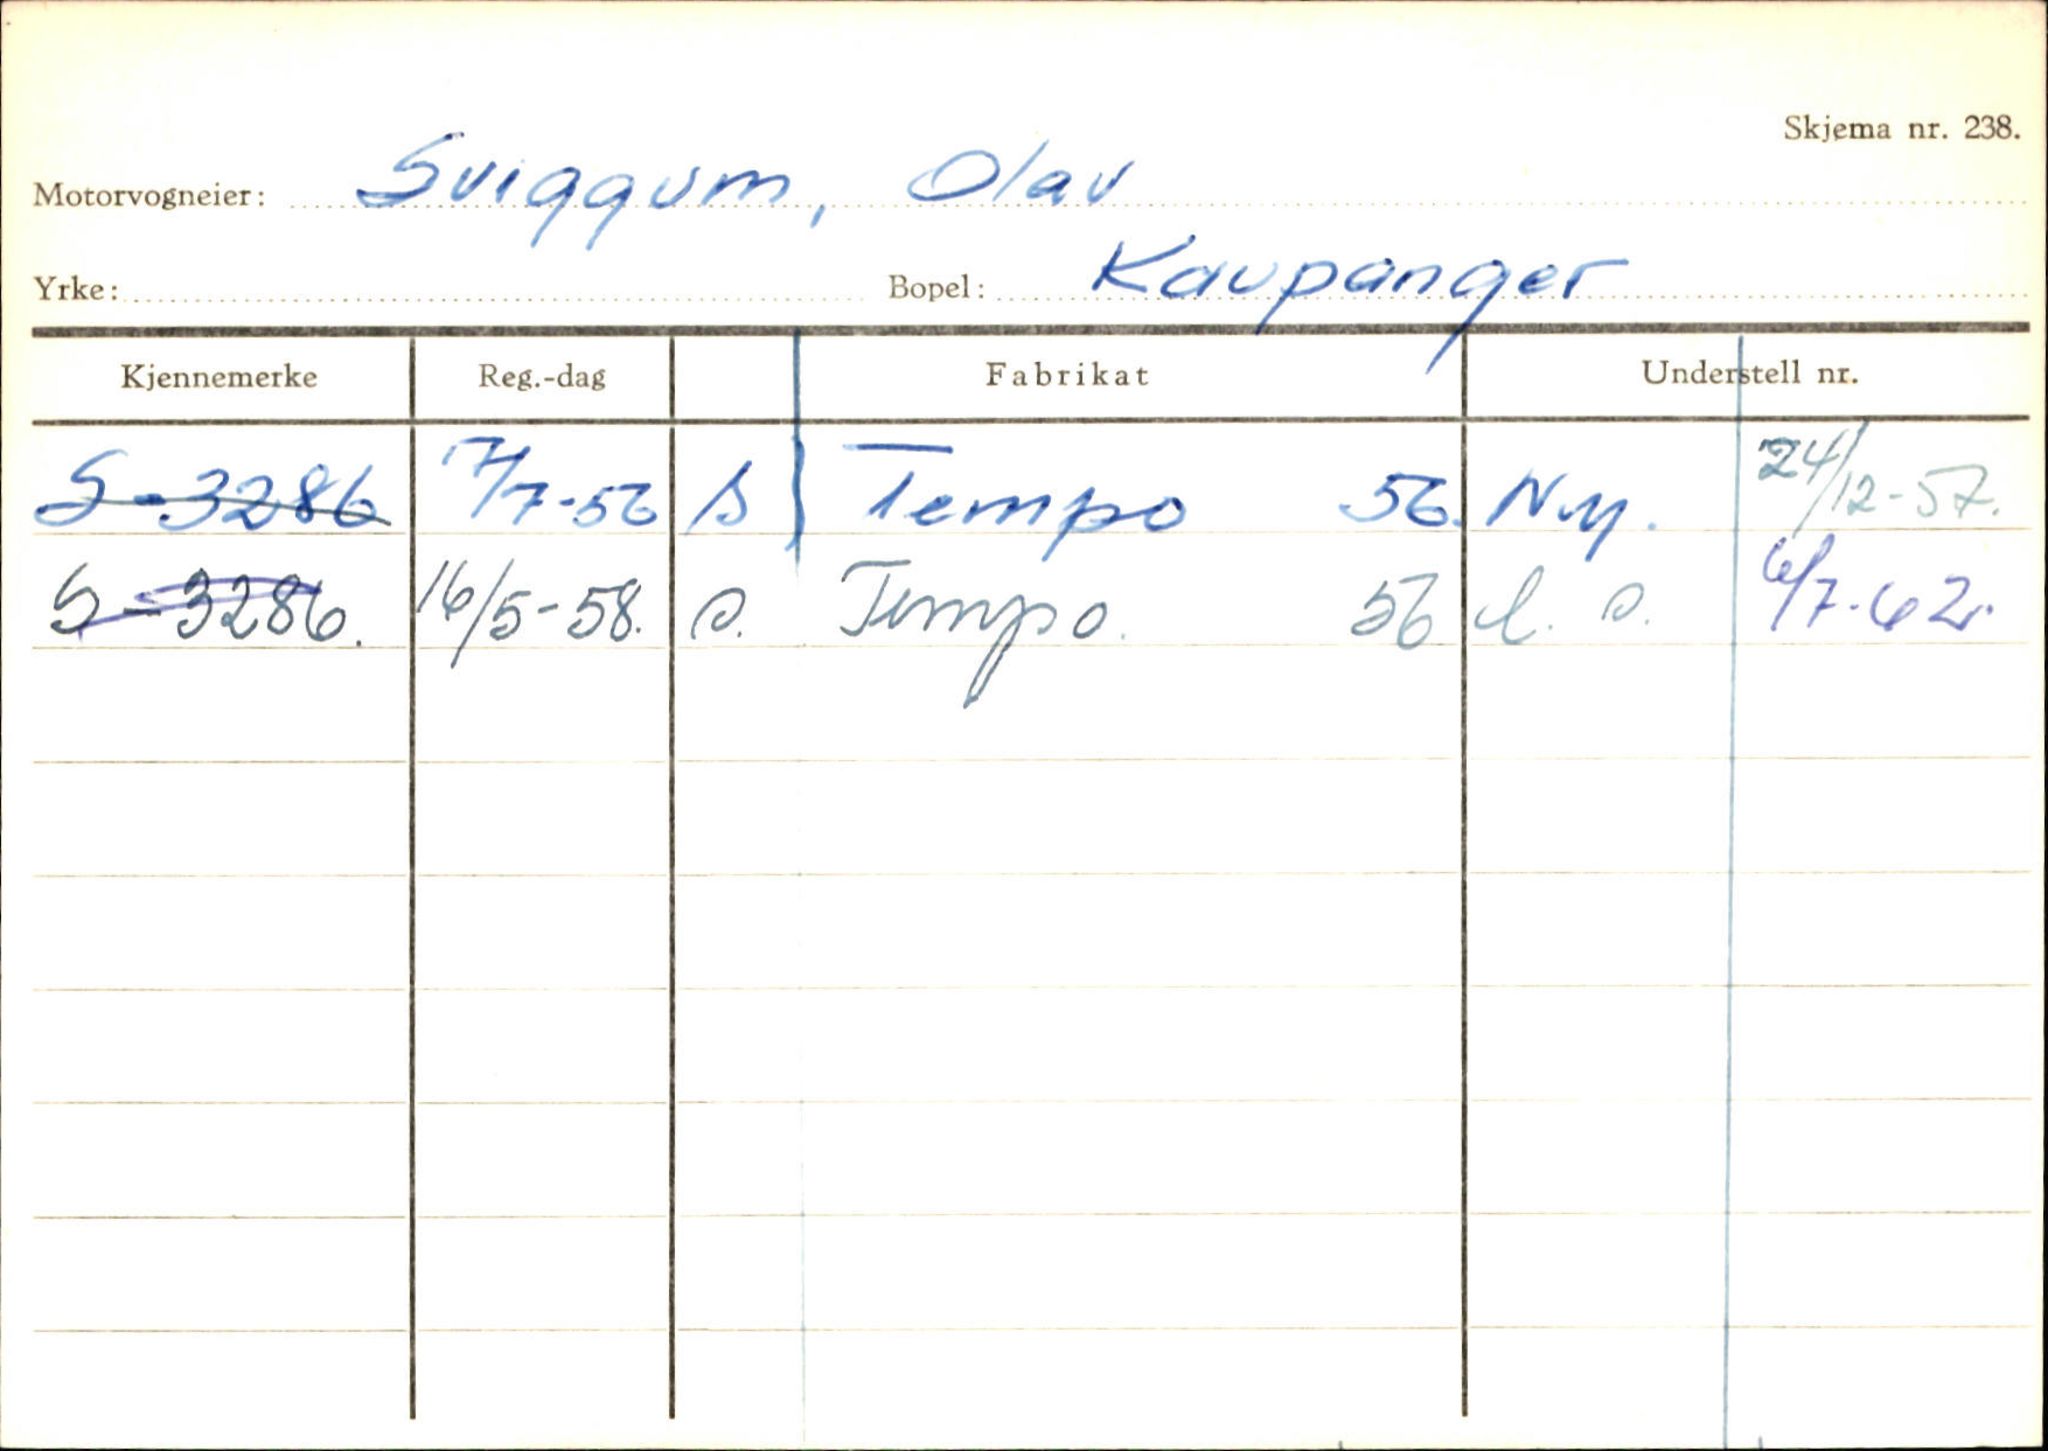 Skjema nr. 238.
Motorvogneier: Sviggum, Olav
Yrke: Bopel: Kaupanger
Kjennemerke Reg.-dag Fabrikat Understell nr.
S-3286 7/7-56 s Tempo 56. Ny. 24/12-57.
S-3286. 16/5-58. s. Tempo. 56 l. s. 6/7-62.